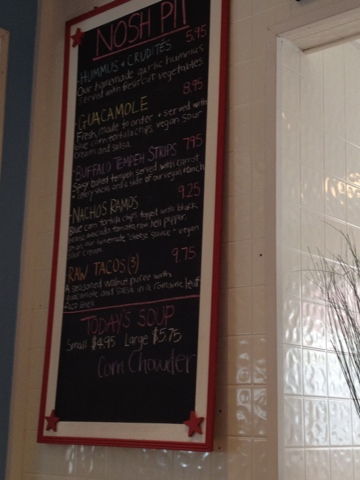 NOSH PIT
HUMMUS + CRUDITÉS 5.95
Our homemade garlic hummus
served with fresh cut vegetables
GUACAMOLE 8.95
Fresh, made to order + served with
blue corn tortilla chips, vegan sour
cream and salsa
BUFFALO TEMPEH STRIPS 7.95
Spicy baked tempeh served with carrot
+ celery sticks and a side of our vegan ranch
NACHOS RAMOS 9.25
Blue corn tortilla chips topped with black
beans, avocado, tomato, pepper,
our homemade "cheese sauce" + vegan
sour cream
RAW TACOS (3) 9.75
A seasoned walnut puree with
guacamole and salsa in a romaine leaf
taco shell
TODAY'S SOUP
Small $4.95 Large $5.75
Corn Chowder